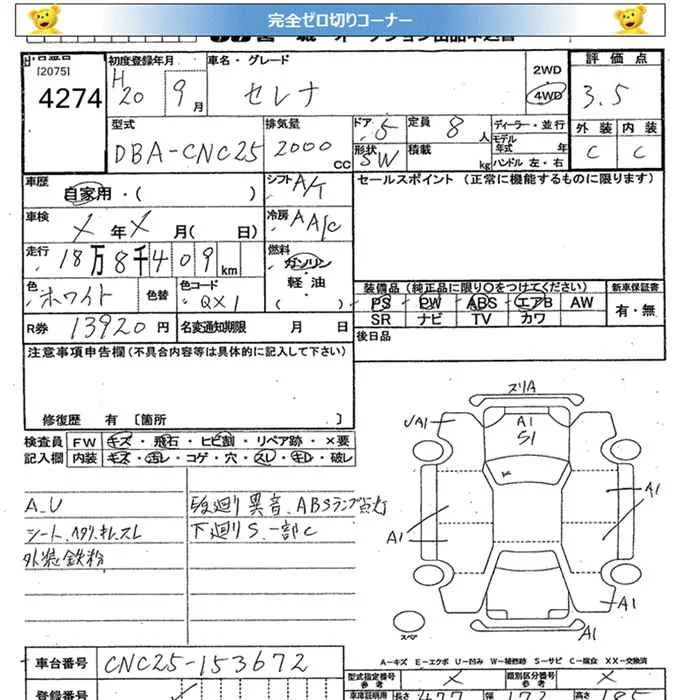 完全ゼロ切りコーナー
[2075]
4274
初度登録年月
H20 9月
車名・グレード
セレナ
2WD
4WD
評価点
3.5
外装 内装
C C
型式
DBA-CNC25
排気量
2000 CC
ドア 5
形状 SW
定員 8 人
積載 kg
ディーラー・並行
モデル年式 年
ハンドル 左・右
車歴
自家用・( )
シフト A/T
セールスポイント (正常に機能するものに限ります)
車検
X 年 X 月( 日)
冷房 AA/C
走行
18万8千409km
燃料
ガソリン
軽油
( )
色 ホワイト 色替
色コード QX1
装備品(純正品に限り○をつけてください)
新車保証書
PS PW ABS エアB AW
SR ナビ TV カワ
有・無
R券 13920円
名変通知期限 月 日
後日品
注意事項申告欄(不具合内容等は具体的に記入して下さい)
修復歴 有 〔箇所 〕
検査員記入欄
FW キズ・飛石・ヒビ割・リペア跡・×要
内装 キズ・汚レ・コゲ・穴・スレ・キレ・破レ
A.U
シート、ヘタリ、キレ、スレ
外装鉄粉
異音、ABSランプ点灯
下廻りS、一部C
ズリA
A1
S1
A1
A1
A1
A1
A1
スペア
A-キズ E-エクボ U-凹み W-補修跡 S-サビ C-腐食 XX-交換済
車台番号 CNC25-153672
型式指定番号 参考 X
類別区分番号 参考 X
登録番号
長さ 477 幅 高さ 185